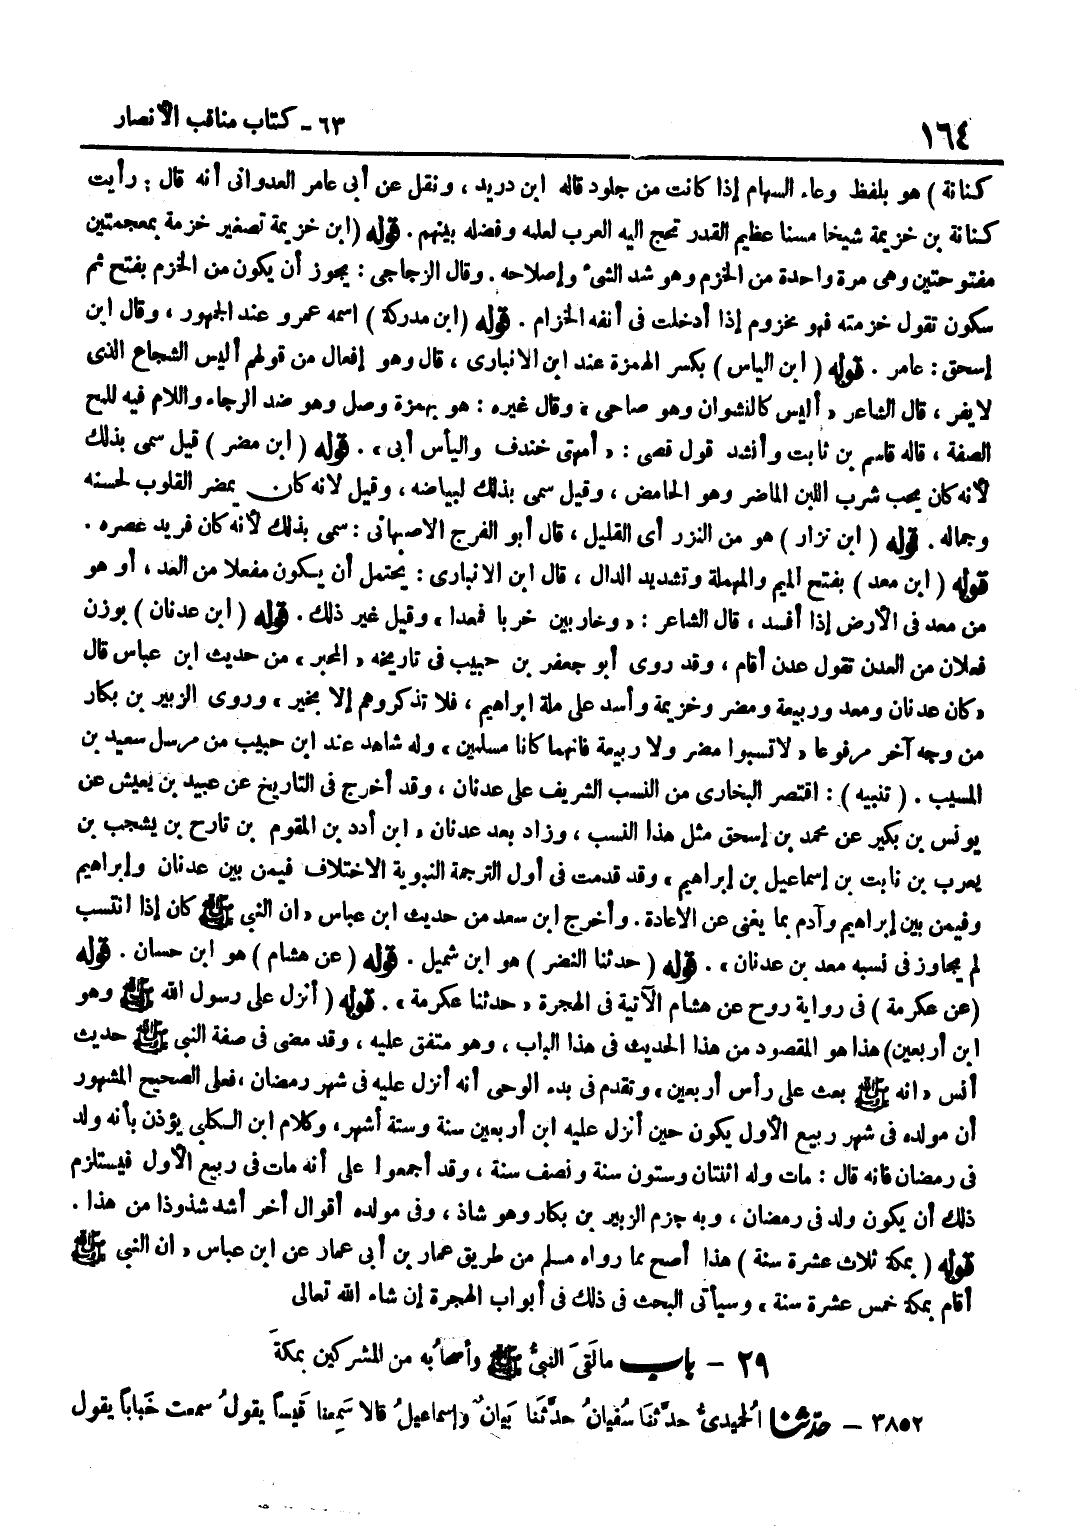 ١٦٤
٦٣ - كتاب مناقب الأنصار
كنانة ) هو بلفظ وعاء السهام إذا كانت من جلود قاله ابن دريد ، ونقل عن أبى عامر العدوانى أنه قال : رأيت
كنانة بن خزيمة شيخا مسنا عظيم القدر تحج اليه العرب لعلمه وفضله بينهم . قوله ( ابن خزيمة تصغير خزمة بمعجمتين
مفتوحتين وهى مرة واحدة من الخزم وهو شد الشىء وإصلاحه . وقال الزجاجى : يجوز أن يكون من الخزم بفتح ثم
سكون تقول خزمته فهو مخزوم إذا أدخلت فى أنفه الخزام . قوله ( ابن مدركة ) اسمه عمرو عند الجمهور ، وقال ابن
إسحق : عامر . قوله ( ابن الياس ) بكسر الهمزة عند ابن الانبارى ، قال وهو إفعال من قولهم أليس الشجاع الذى
لا يفر ، قال الشاعر « أليس كالنشوان وهو صاحى » وقال غيره : هو بهمزة وصل وهو ضد الرجاء واللام فيه للمح
الصفة ، قاله قاسم بن ثابت وأنشد قول قصى : « أمهتى خندف والياس أبى » . قوله ( ابن مضر ) قيل سمى بذلك
لأنه كان يحب شرب اللبن الماضر وهو الحامض ، وقيل سمى بذلك لبياضه ، وقيل لانه كان يمضر القلوب لحسنه
وجماله . قوله ( ابن نزار ) هو من النزر أى القليل ، قال أبو الفرج الاصبهانى : سمى بذلك لأنه كان فريد عصره .
قوله ( ابن معد ) بفتح الميم والمهملة وتشديد الدال ، قال ابن الانبارى : يحتمل أن يكون مفعلا من العد ، أو هو
من معد فى الأرض إذا أفسد ، قال الشاعر : « وخاربين خربا فمعدا » وقيل غير ذلك . قوله ( ابن عدنان ) بوزن
فعلان من العدن تقول عدن أقام ، وقد روى أبو جعفر بن حبيب فى تاريخه « المحبر » من حديث ابن عباس قال
« كان عدنان ومعد وربيعة ومضر وخزيمة وأسد على ملة ابراهيم ، فلا تذكروهم إلا بخير » وروى الزبير بن بكار
من وجه آخر مرفوعا « لا تسبوا مضر ولا ربيعة فانهما كانا مسلمين » وله شاهد عند ابن حبيب من مرسل سعيد بن
المسيب . ( تنبيه ) : اقتصر البخارى من النسب الشريف على عدنان ، وقد أخرج فى التاريخ عن عبيد بن يعيش عن
يونس بن بكير عن محمد بن إسحق مثل هذا النسب ، وزاد بعد عدنان « ابن أدد بن المقوم بن تارح بن يشجب بن
يعرب بن نابت بن إسماعيل بن إبراهيم » وقد قدمت فى أول الترجمة النبوية الاختلاف فيمن بين عدنان وإبراهيم
وفيمن بين إبراهيم وآدم بما يغنى عن الاعادة . وأخرج ابن سعد من حديث ابن عباس « ان النبى ﷺ كان إذا انتسب
لم يجاوز فى نسبه معد بن عدنان » . قوله ( حدثنا النضر ) هو ابن شميل . قوله ( عن هشام ) هو ابن حسان . قوله
( عن عكرمة ) فى رواية روح عن هشام الآتية فى الهجرة « حدثنا عكرمة » . قوله ( أنزل على رسول الله ﷺ وهو
ابن أربعين ) هذا هو المقصود من هذا الحديث فى هذا الباب ، وهو متفق عليه ، وقد مضى فى صفة النبى ﷺ حديث
أنس « انه ﷺ بعث على رأس أربعين » وتقدم فى بدء الوحى أنه أنزل عليه فى شهر رمضان ، فعلى الصحيح المشهور
أن مولده فى شهر ربيع الأول يكون حين أنزل عليه ابن أربعين سنة وستة أشهر ، وكلام ابن الكلبى يؤذن بأنه ولد
فى رمضان فانه قال : مات وله اثنتان وستون سنة ونصف سنة ، وقد أجمعوا على أنه مات فى ربيع الأول فيستلزم
ذلك أن يكون ولد فى رمضان ، وبه جزم الزبير بن بكار وهو شاذ ، وفى مولده أقوال أخر أشد شذوذا من هذا .
قوله ( بمكة ثلاث عشرة سنة ) هذا أصح مما رواه مسلم من طريق عمار بن أبى عمار عن ابن عباس « ان النبى ﷺ
أقام بمكة خمس عشرة سنة » وسيأتى البحث فى ذلك فى أبواب الهجرة إن شاء الله تعالى
٢٩ - باب ما لَقِىَ النبىُّ ﷺ وأصحابُه من المشركين بمكةَ
٣٨٥٢ - حدّثنا الحُميدىُّ حدَّثَنا سُفيانُ حدَّثَنا بَيانٌ وإسماعيلُ قالا سَمِعنا قَيساً يقولُ سمعت خَباباً يقول